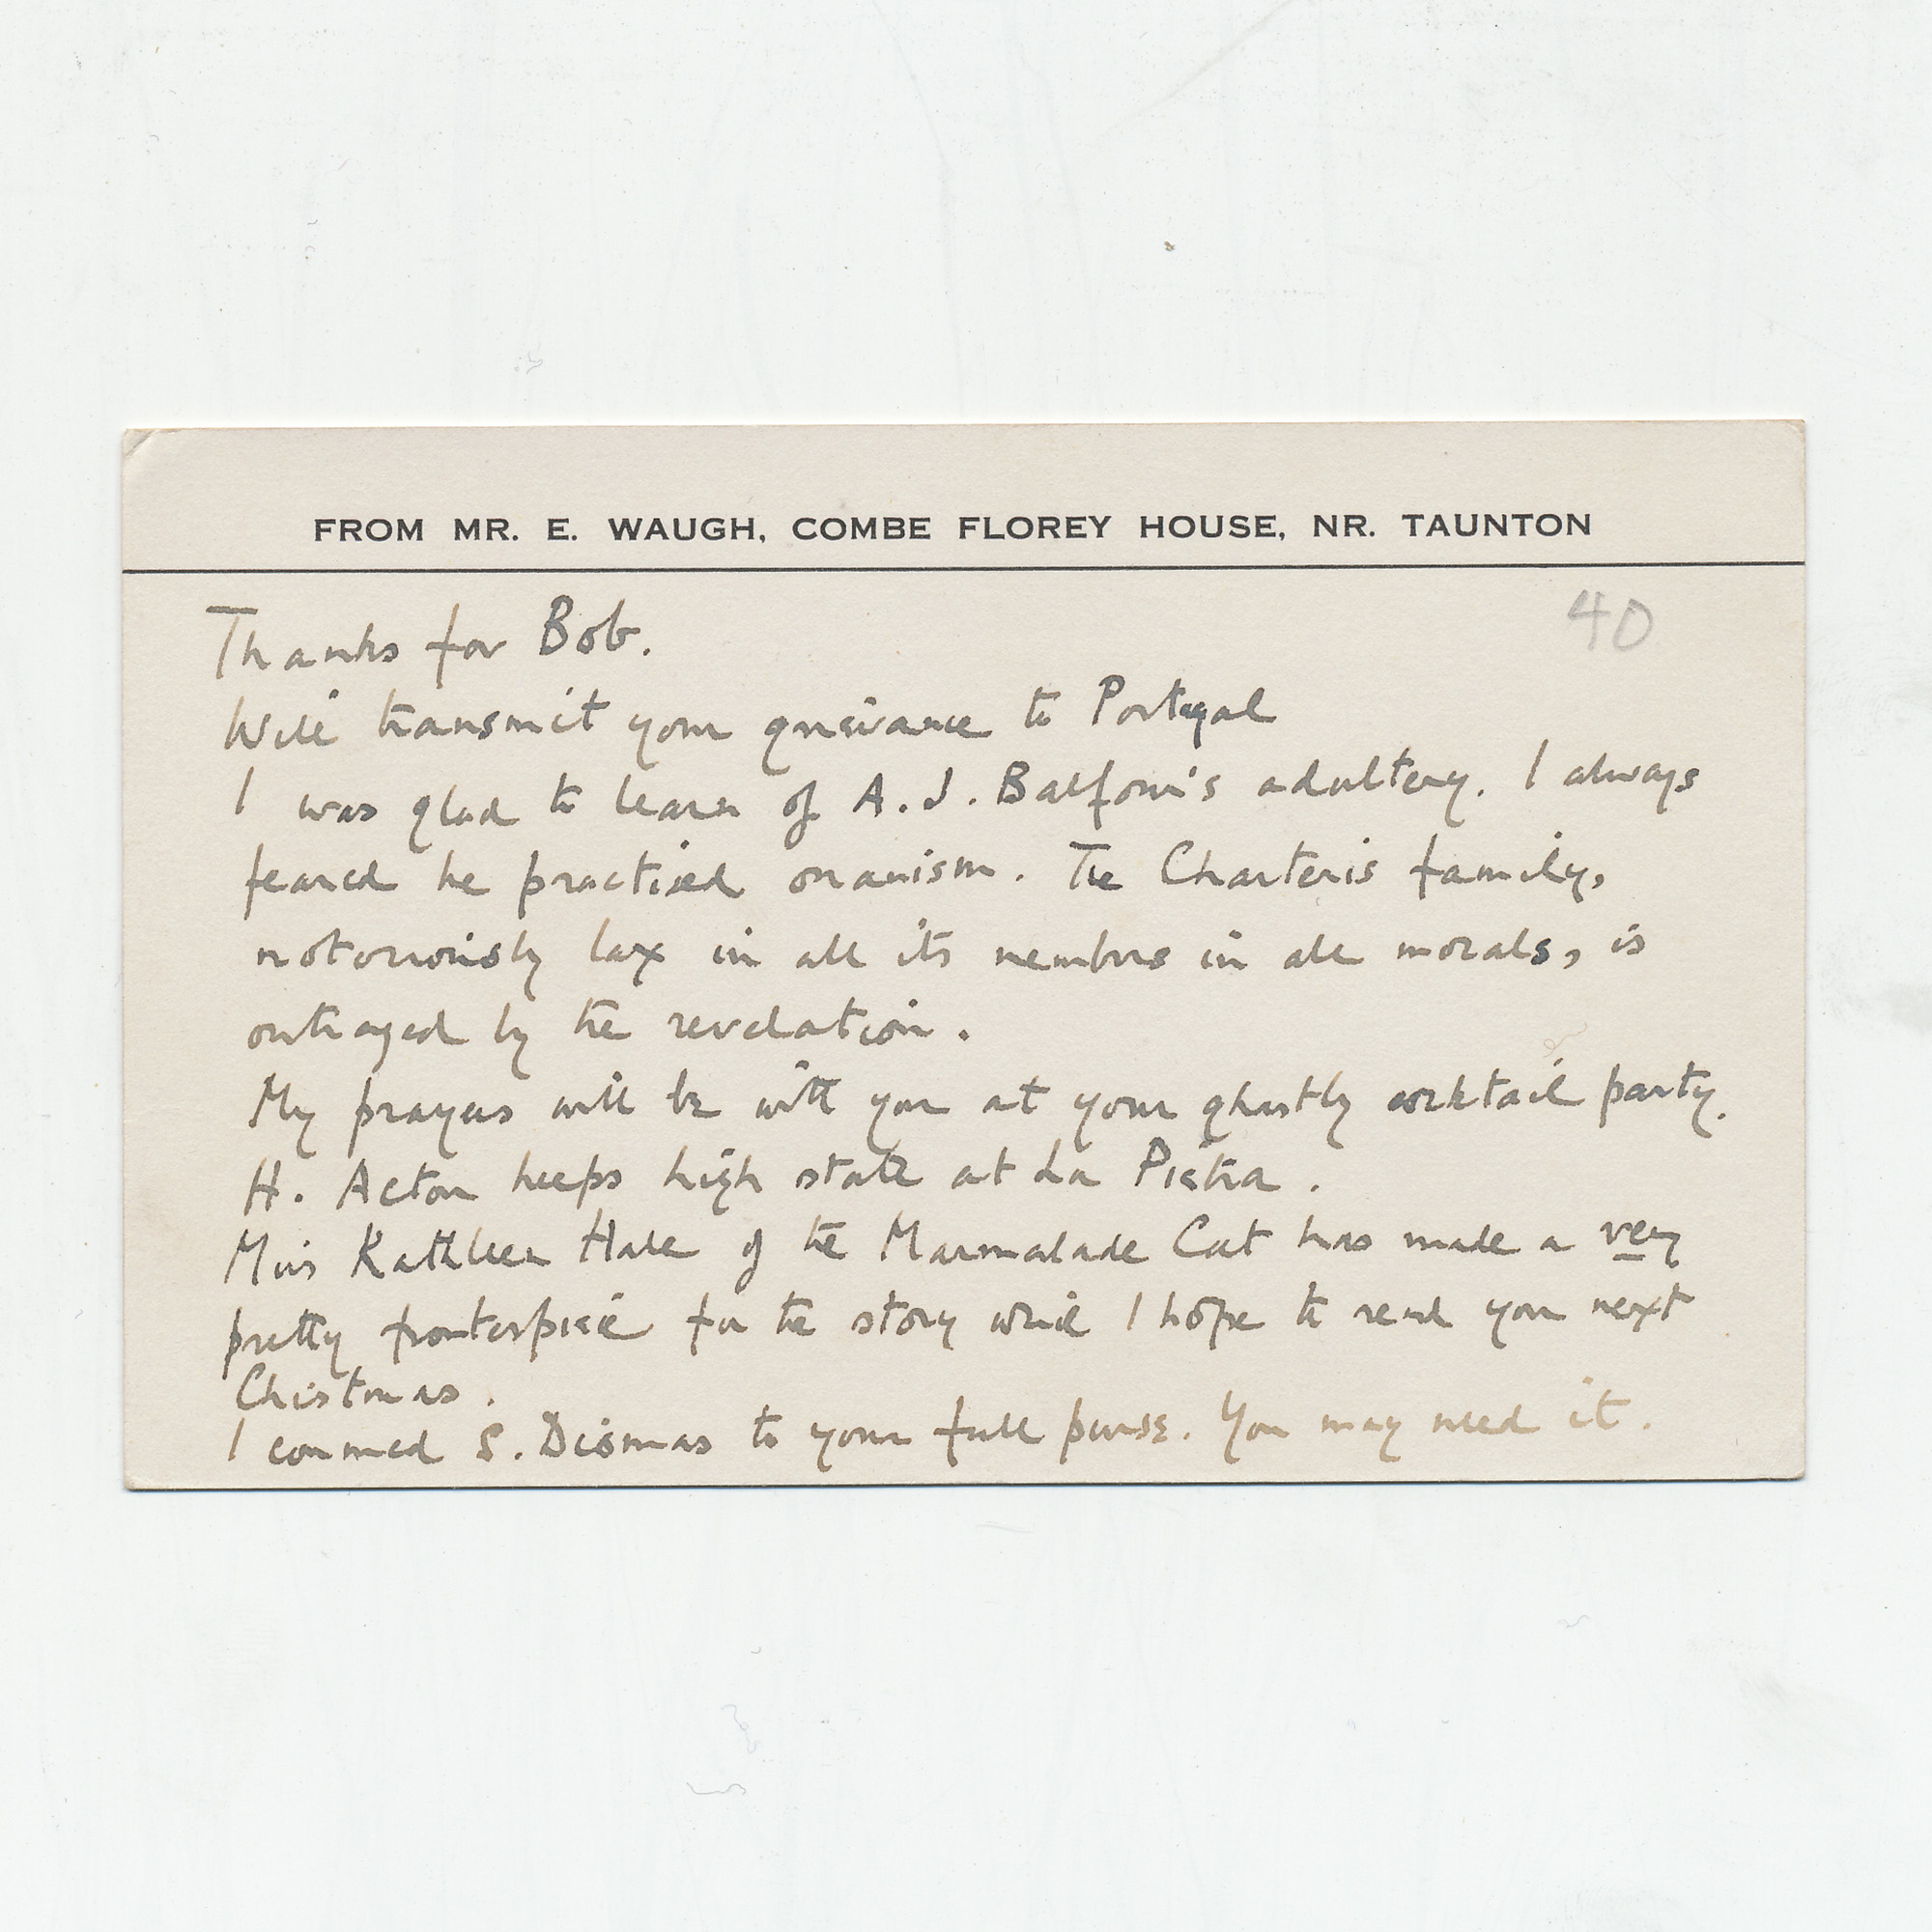 FROM MR. E. WAUGH, COMBE FLOREY HOUSE, NR. TAUNTON
40
Thanks for Bob.
Will transmit your grievance to Portugal
I was glad to learn of A. J. Balfour's adultery. I always
feared he practised onanism. The Charteris family,
notoriously lax in all its members in all morals, is
outraged by the revelation.
My prayers will be with you at your ghastly cocktail party.
H. Acton keeps high state at La Pietra.
Miss Kathleen Hale of the Marmalade Cat has made a very
pretty frontispiece for the story which I hope to send you next
Christmas.
I commend S. Dismas to your full purse. You may need it.